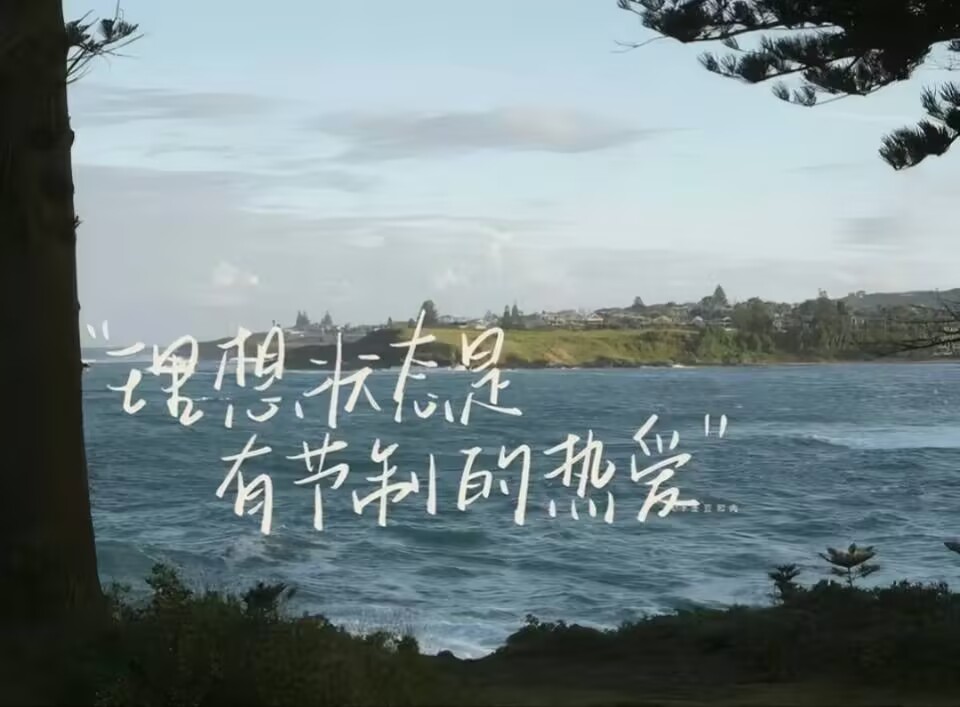 "理想状态是
有节制的热爱"